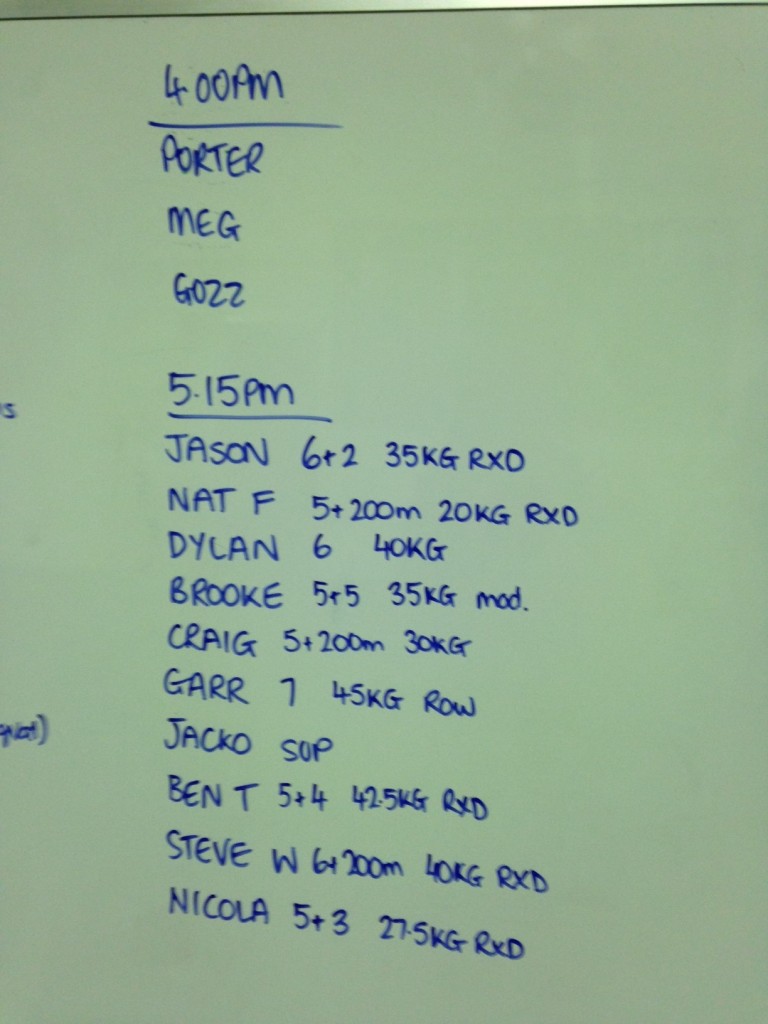 4.00PM
PORTER
MEG
GOZZ
5.15pm
JASON 6+2 35KG RXD
NAT F 5+200m 20KG RXD
DYLAN 6 40KG
BROOKE 5+5 35KG mod.
CRAIG 5+200m 30KG
GARR 7 45KG ROW
JACKO SOP
BEN T 5+4 42.5KG RXD
STEVE W 6+200m 40KG RXD
NICOLA 5+3 27.5KG RXD